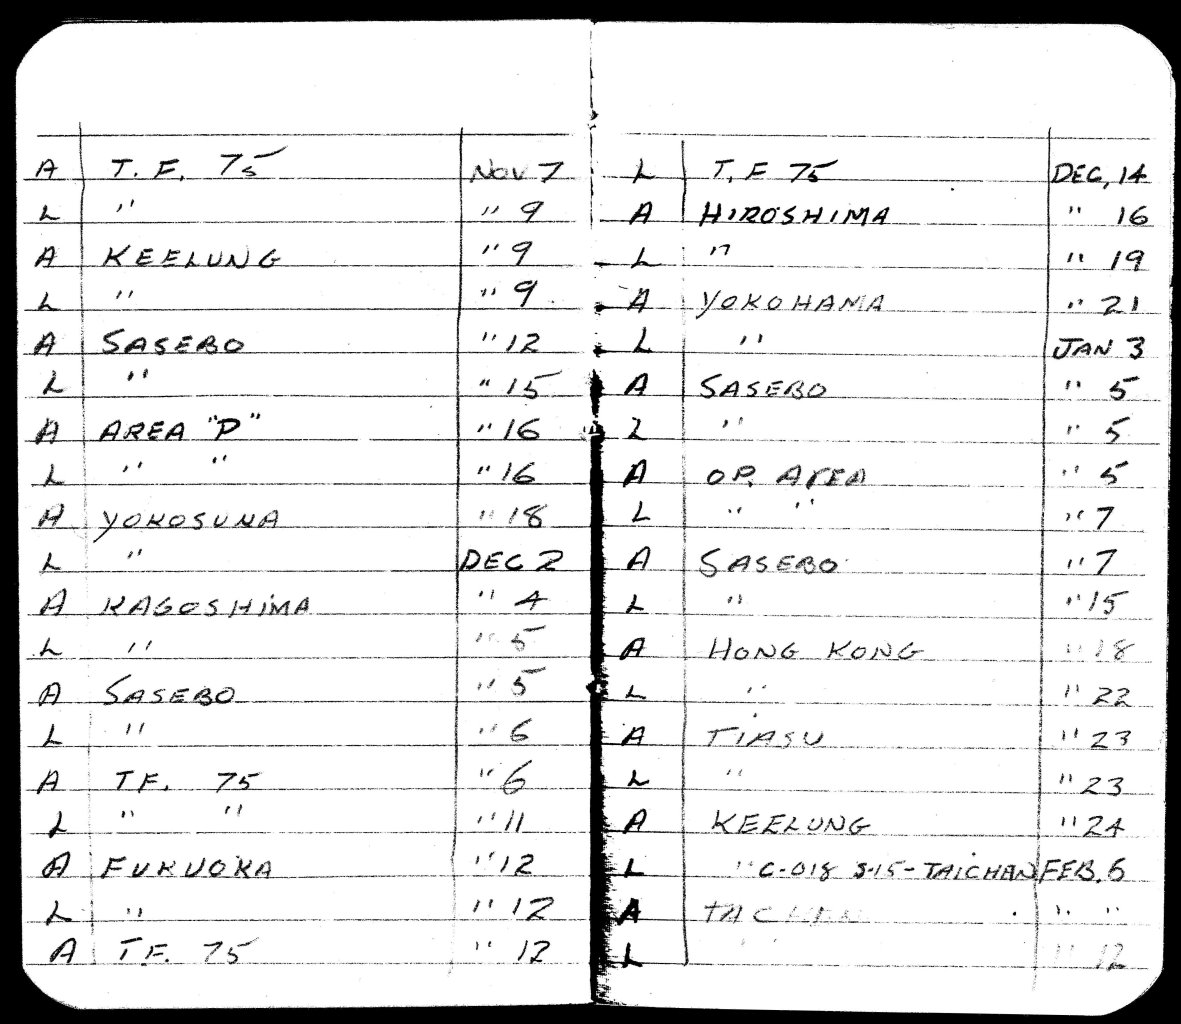 A T. F. 75 NOV 7
L " " 9
A KEELUNG " 9
L " " 9
A SASEBO " 12
L " " 15
A AREA "P" " 16
L " " " 16
A YOKOSUKA " 18
L " DEC 2
A KAGOSHIMA " 4
L " " 5
A SASEBO " 5
L " " 6
A TF. 75 " 6
L " " " 11
A FUKUOKA " 12
L " " 12
A TF. 75 " 12
L T. F 75 DEC, 14
A HIROSHIMA " 16
L " " 19
A YOKOHAMA " 21
L " JAN 3
A SASEBO " 5
L " " 5
A OP. AREA " 5
L " " " 7
A SASEBO " 7
L " " 15
A HONG KONG " 18
L " " 22
A TIASU " 23
L " " 23
A KEELUNG " 24
L " C-018 S-15-TAICHAN FEB. 6
A TAICHAN " "
L " " " 12